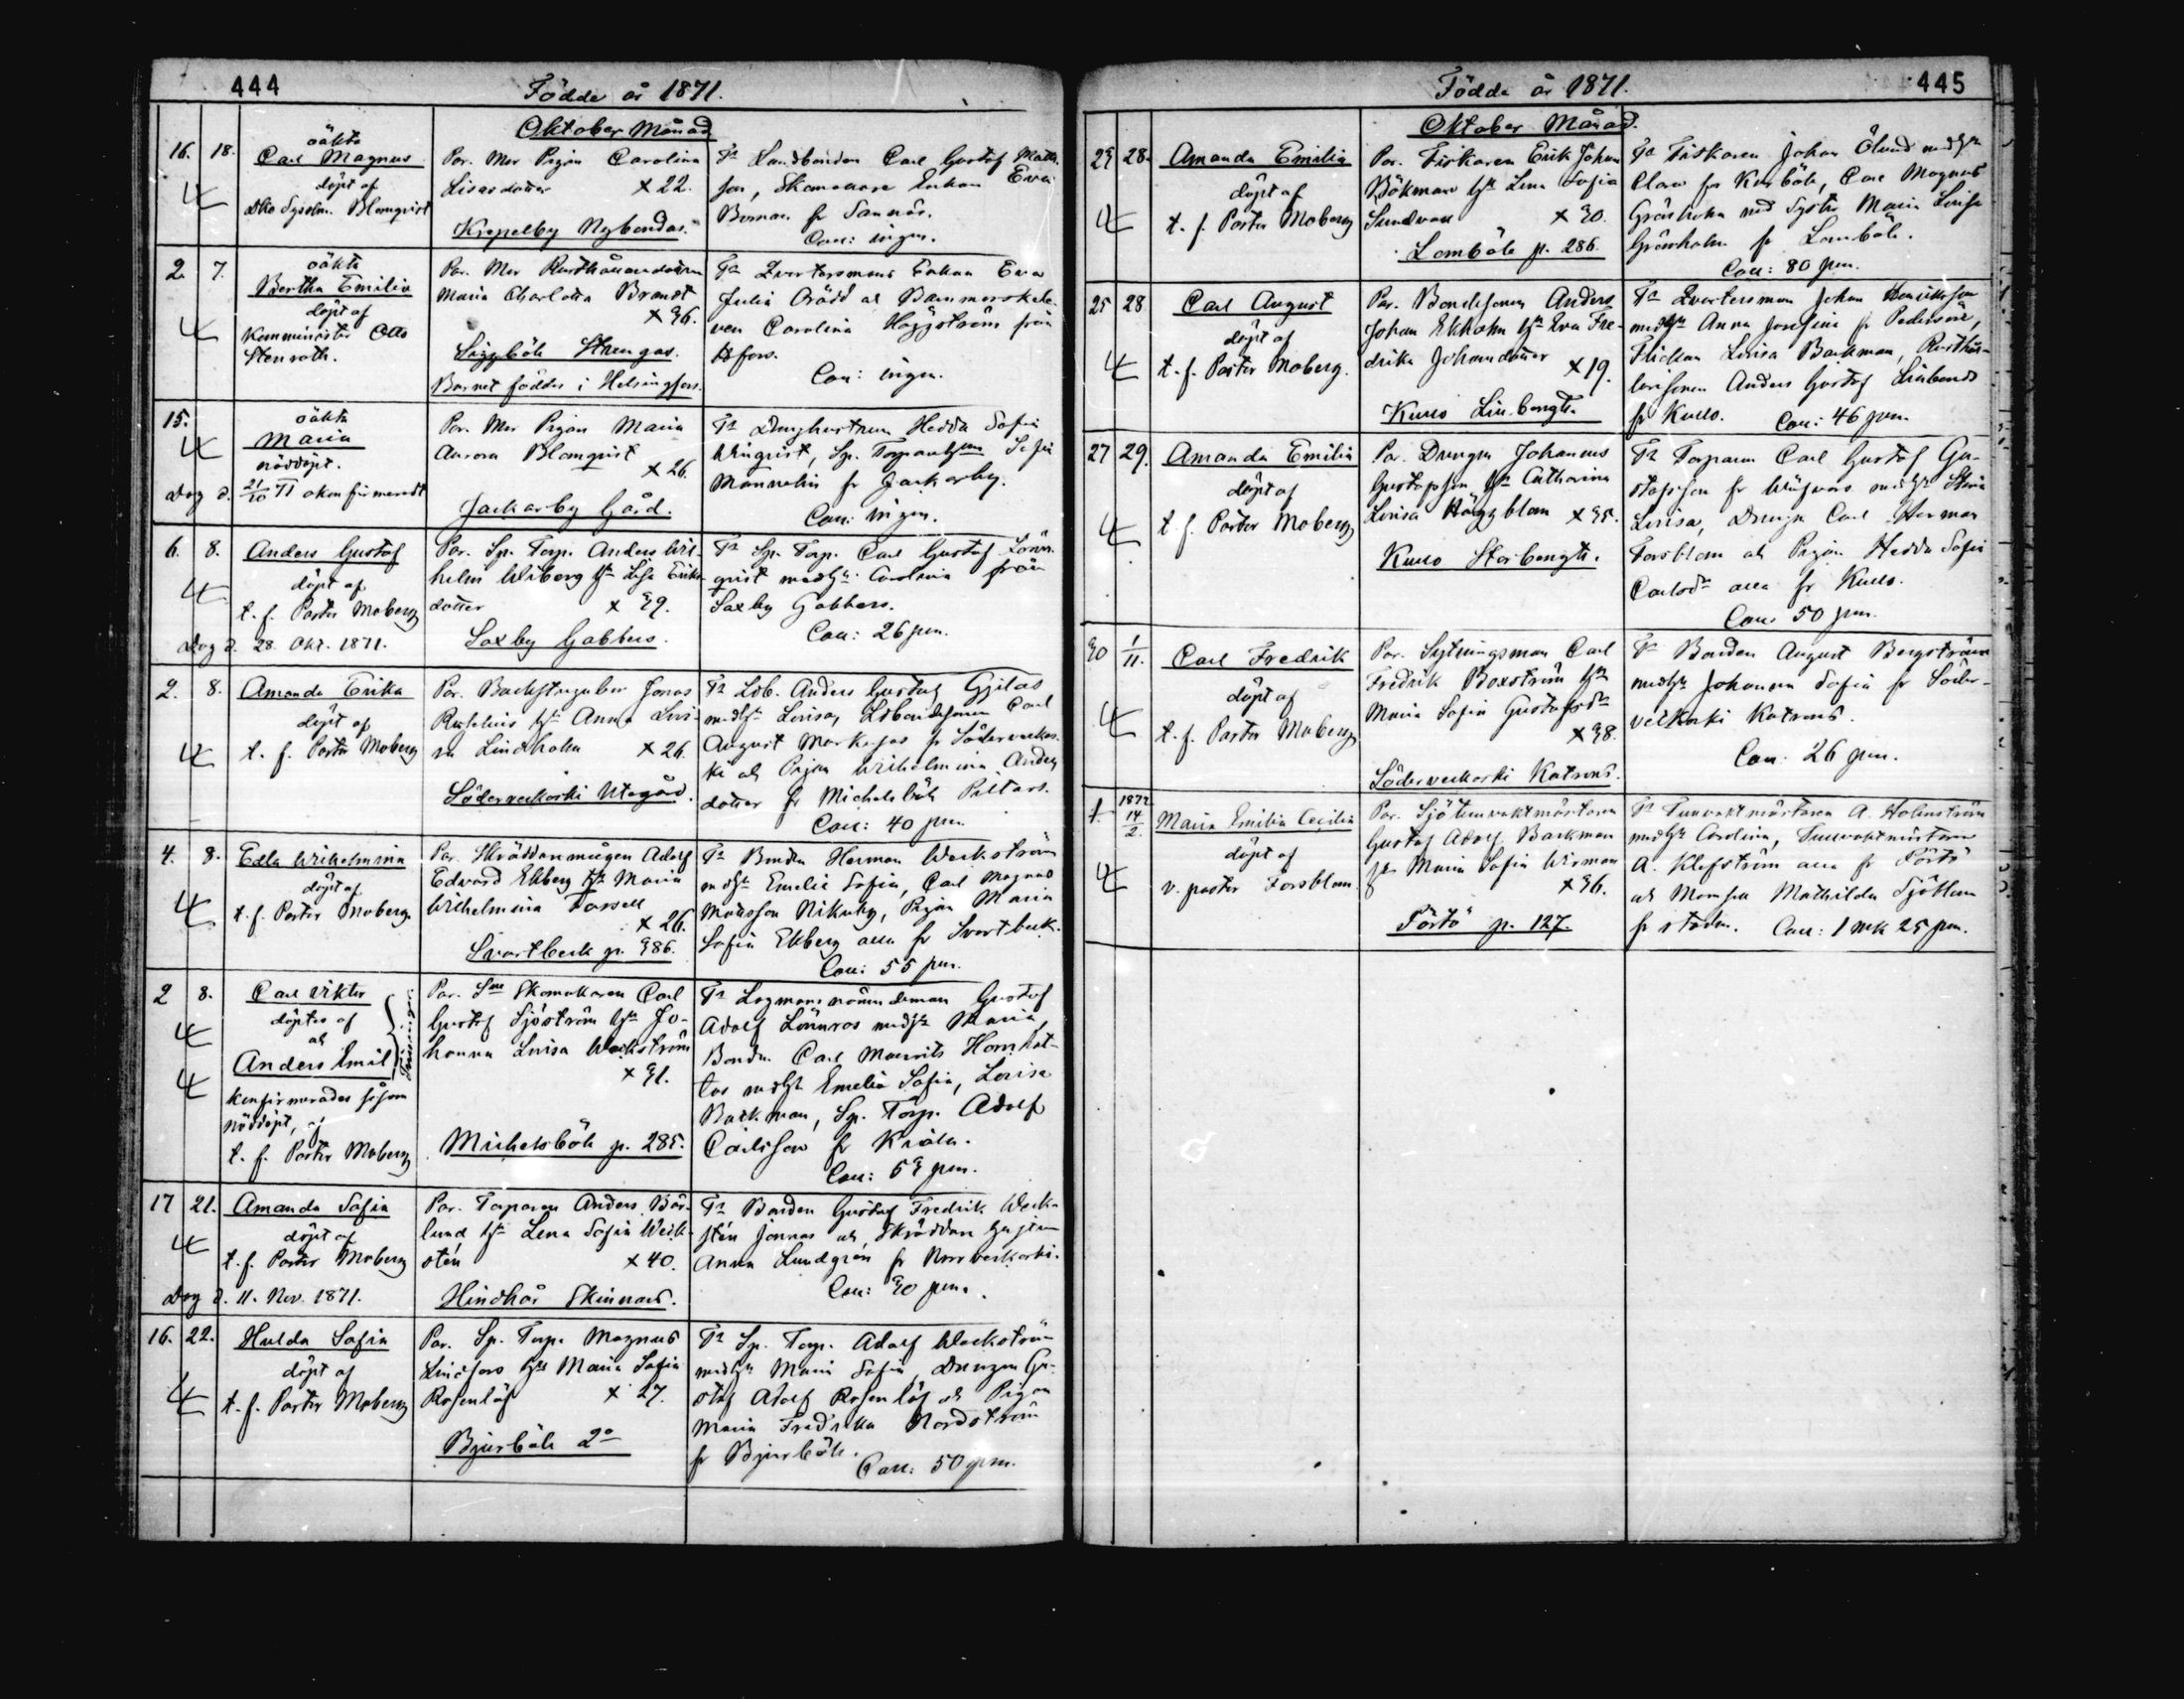 444
Födde år 1871.
Oktober Månad
16. 18.
oäkta
Carl Magnus
döpt af
Blomqvist
Par. Mor Pigan Carolina
Lisasdotter x 22.
Kjepelby Nybondas.
Tr Landbonden Carl Gustaf Matts
son, Skomakare Enkan Eva
Boman fr Sannäs.
Coll: ingen.
2. 7.
oäkta
Bertha Emilia
döpt af
Komminister Otto
Stenroth.
Par. Mor
Maria Charlotta Brandt
x 36.
Siggböle Strengas.
Barnet föddes i Helsingfors.
Tr Qvartersmans Enkan Eva
Julia
ven Carolina Häggström från
H:fors.
Coll: ingen.
15.
oäkta
Maria
nöddöpt.
Dog d. 21/10 71 okonfirmeradt
Par. Mor Pigan Maria
Aurora Blomqvist
x 26.
Jackarby Gård.
Tr Drenghustrun Hedda Sofia
Winqvist, Sp. Torparehn Sofia
Mannelin fr Jackarby.
Coll: ingen.
6. 8.
Anders Gustaf
döpt af
t. f. Pastor Moberg
Dog d. 28. Okt. 1871.
Par. Sp. Torp. Anders Wil-
helm Wiberg hn Lisa Eriks-
dotter x 39.
Saxby Gabbers.
Tr Sp. Torp. Carl Gustaf Lönn-
qvist medhn Carolina från
Saxby Gabbers.
Coll: 26 pen.
2. 8.
Amanda Erika
döpt af
t. f. Pastor Moberg
Par. Backstugubon Jonas
Roselius hn Anna Lovi-
sa Lindholm x 26.
Söderveckoski Utegård.
Tr Ldb. Anders Gustaf Gjilas
medhn Lovisa, Carl
August Markusas fr Söderveckos-
ki och Pigan Wilhelmina Anders
dotter fr Michelsböle Pittars.
Coll: 40 pen.
4. 8.
Edla Wilhelmina
döpt af
t. f. Pastor Moberg
Par. Skräddarmågen Adolf
Edvard Ekberg hn Maria
Wilhelmina Forsell
x 26.
Svartbeck p. 386.
Tr Bonden Herman Weckström
medhn Emelie Sofia, Carl Magnus
Mattsson Nikuby, Pigan Maria
Sofia Ekberg alla fr Svartbeck.
Coll: 55 pen.
2 8.
Carl Viktor
döptes af
och
Anders Emil
Tvillingar
konfirmerades såsom
nöddöpt, af
t. f. Pastor Moberg
Par. Skomakaren Carl
Gustaf Sjöström hn Jo-
hanna Lovisa Weckström
x 31.
Michelsböle p. 285.
Tr Lagmansnämndeman Gustaf
Adolf Lönnros medhn Maria,
Bonden Carl Maurits Hornhat-
tas medhn Emelie Sofia, Lovisa
Backman, Sp. Torp. Adolf
Carlsson fr Kråkö.
Coll: 63 pen.
17 21.
Amanda Sofia
döpt af
t. f. Pastor Moberg
Dog d. 11. Nov. 1871.
Par. Torparen Anders Bäck-
lund hn Lena Sofia Weck-
stén x 40.
Hindhår Skinnars.
Tr Bonden Gustaf Fredrik Weck-
stén Jonnas och Skräddare
Anna Lundgrén fr Norrveckoski.
Coll: 30 pen.
16. 22.
Hulda Sofia
döpt af
t. f. Pastor Moberg
Par. Sp. Torp. Magnus
Lindfors hn Maria Sofia
Rosenlöf x 27.
Bjurböle 2o
Tr Sp. Torp. Adolf Weckström
medhn Maria Sofia, Drengen Gu-
staf Adolf Rosenlöf och Pigan
Maria Fredrika Nordström
fr Bjurböle.
Coll: 50 pen.
445
Födde år 1871.
Oktober Månad.
23 28.
Amanda Emilia
döpt af
t. f. Pastor Moberg
Par. Fiskaren Erik Johan
Bökman hn Lena Sofia
Sundvall x 30.
Lomböle p. 286.
Tr Fiskaren Johan Ölund medhn
Clara fr Karböle, Carl Magnus
Gränholm med Syster Maria Lovisa
Gränholm fr Lomböle.
Coll: 80 pen.
25 28
Carl August
döpt af
t. f. Pastor Moberg.
Par. Bondesonen Anders
Johan Ekholm hn Eva Fre-
drika Johansdotter x 19.
Kullo Lill-bengts.
Tr Qvartersman Johan Henriksson
medhn Anna Josefina fr Pedersöre,
Flickan Lovisa Backman,
Anders Gustaf
fr Kullo. Coll: 46 pen.
27 29.
Amanda Emilia
döpt af
t. f. Pastor Moberg
Par. Drengen Johannes
Gustafsson hn Catharina
Lovisa Häggblom x 35.
Kullo Storbengts.
Tr Torparen Carl Gustaf Gu-
stafsson fr medhn
Lovisa, Drengen Carl Herman
Forsblom och Pigan Hedda Sofia
Carlsdr alla fr Kullo.
Coll: 50 pen.
30 1/11.
Carl Fredrik
döpt af
t. f. Pastor Moberg
Par. Sytningsman Carl
Fredrik Boxström hn
Maria Sofia Gustafsdr
x 38.
Söderveckoski Katrens.
Tr Bonden August Bergström
medhn Johanna Sofia fr Söder-
veckoski Katrens.
Coll: 26 pen.
1. 1872 14/2.
Maria Emilia Cecilia
döpt af
v. pastor Forsblom.
Par. Sjötullvaktmästaren
Gustaf Adolf Backman
hn Maria Sofia Wirman
x 36.
Pörtö p. 127.
Tr Tullvaktmästaren A. Holmström
medhn Carolina, Tullvaktmästaren
A. Klefström alla fr Pörtö
och Mamsell Mathilda Sjöblom
fr staden. Coll: 1 mk 25 pen.